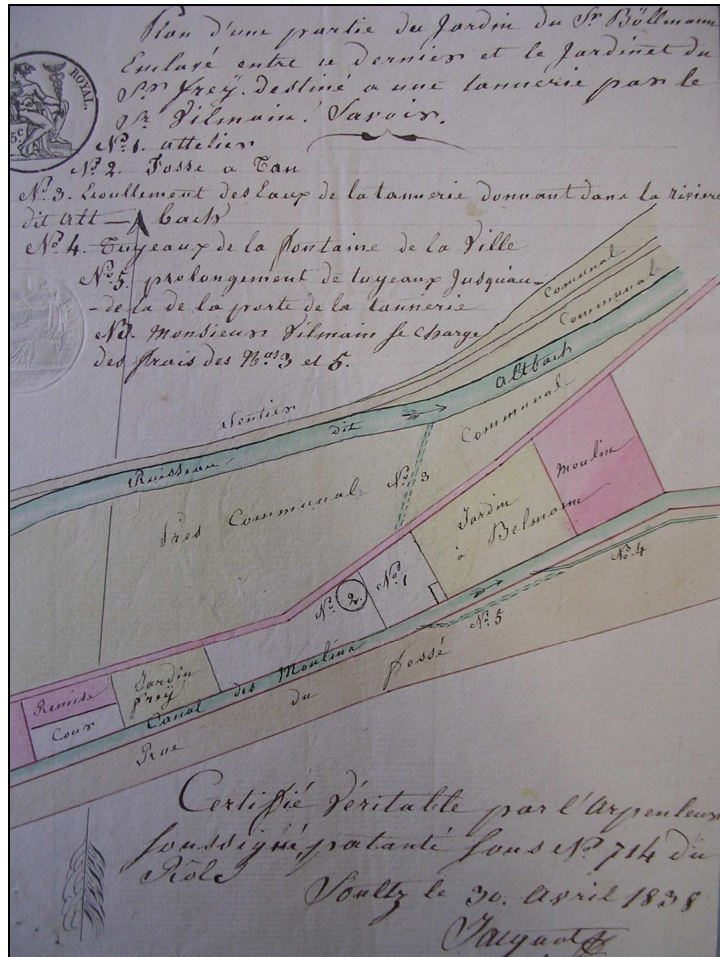 Plan d'une partie du Jardin du Sr Böllmann
Enclavé entre ce dernier et le Jardinet du
Sr freÿ. destiné a une tannerie par le
Sr Vilmain. Savoir.
ROYAL.
5c
No 1. attelier
No 2. Fosse a Tan
No 3. Ecoullement des Eaux de la tannerie donnant dans la riviere
dit Alt— bach
No 4. Tuyeaux de la fontaine de la Ville
No 5. prolongement de tuyeaux Jusquau-
-de la de la porte de la tannerie
NB. Monsieur Vilmain se Charge
des frais des Nos 3 et 5.
Communal
Communal
Sentier
Ruisseau dit Altbach
Communal
Prés Communal
No 3
Moulin
Jardin
à Belmann
No 4
No 1
No 2.
No 5
Remise
Cour
Jardin
freÿ
Canal des Moulins
Rue du fossé
Certifié Véritable par l'Arpenteur
soussigné, patanté sous No 714 du
Rôle
Soultz le 30. Avril 1838
Jacquot